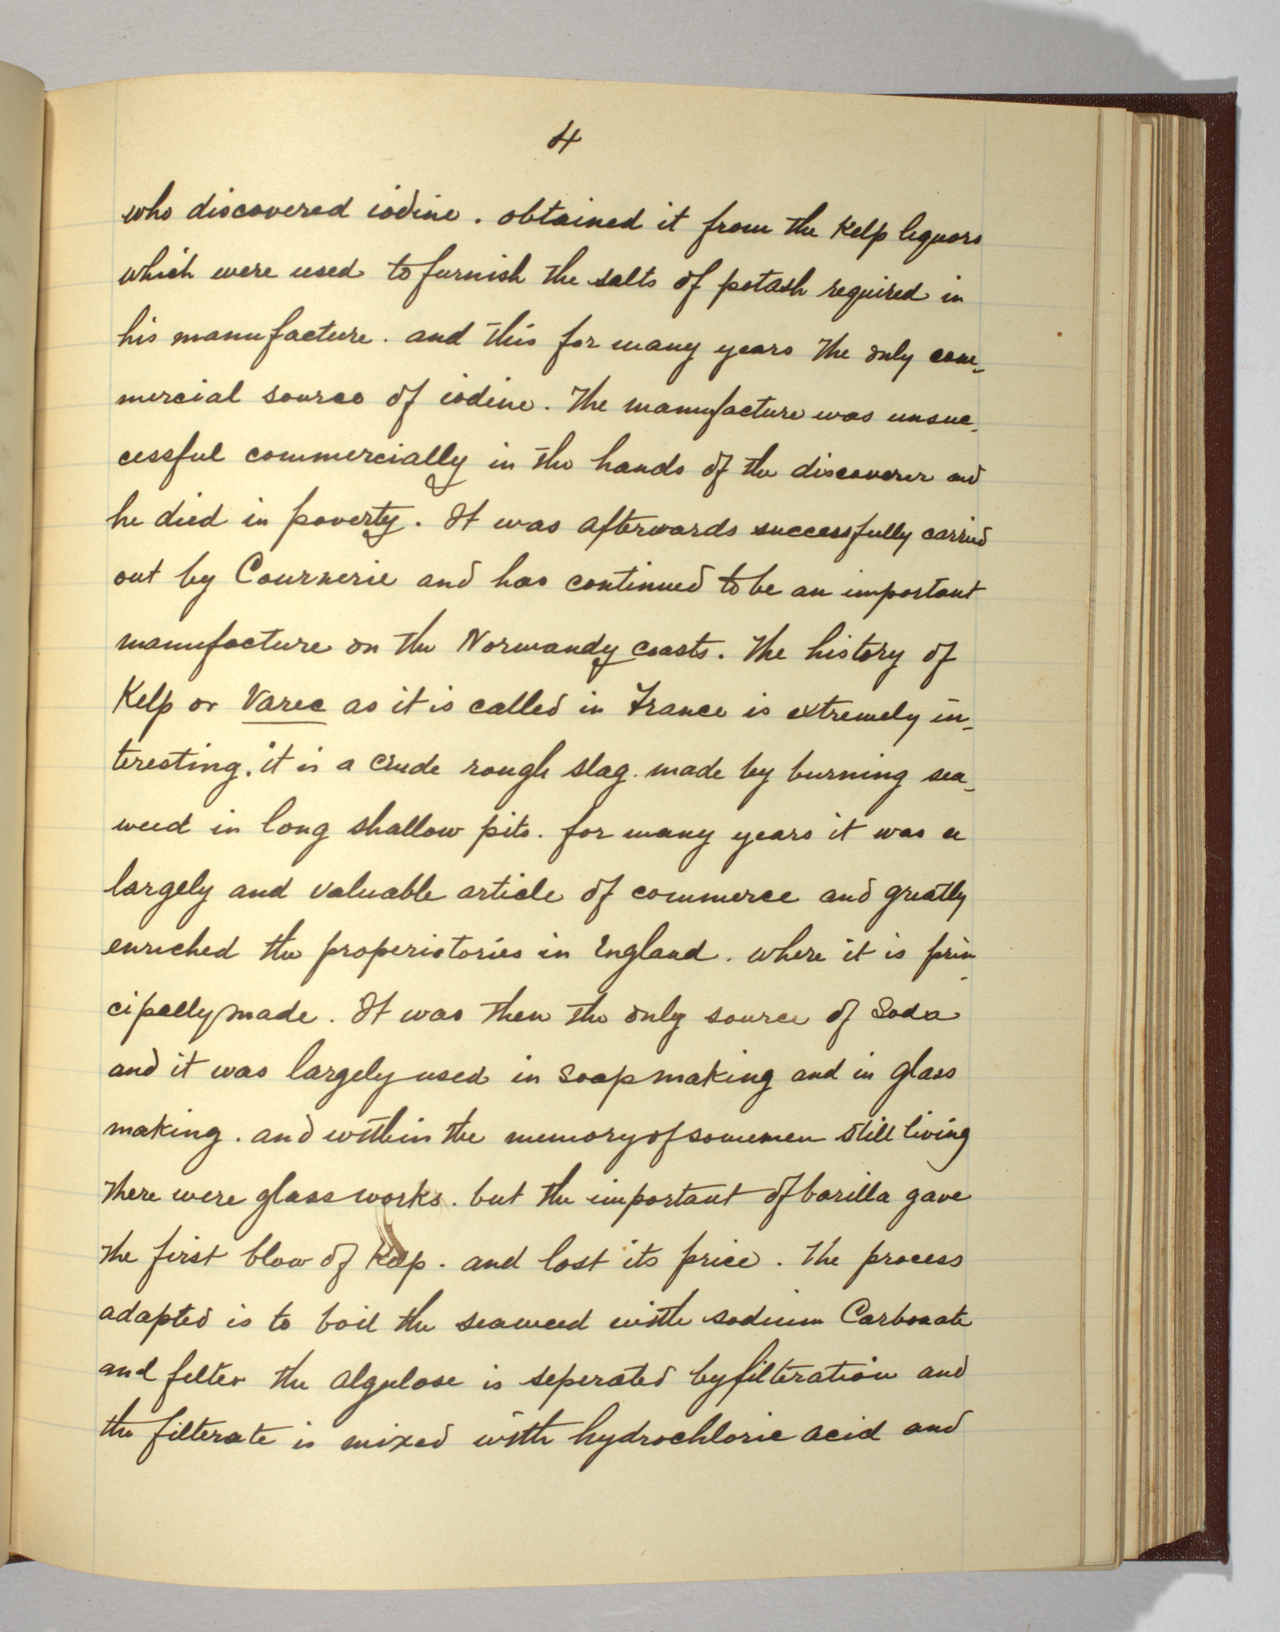 4
who discovered iodine. obtained it from the Kelp liquors
which were used to furnish the salts of potash required in
his manufacture. and this for many years the only com-
mercial source of iodine. The manufacture was unsuc-
cessful commercially in the hands of the discoverer and
he died in poverty. It was afterwards successfully carried
out by Cournerie and has continued to be an important
manufacture on the Normandy coasts. The history of
Kelp or Varec as it is called in France is extremely in-
teresting. it is a crude rough slag. made by burning sea-
weed in long shallow pits. for many years it was a
largely and valuable article of commerce and greatly
enriched the properistories in England. where it is prin-
cipally made. It was then the only source of Soda
and it was largely used in soap making and in glass
making. and within the memory of some men still living
there were glass works. but the important of barilla gave
the first blow of Kelp. and lost its price. The process
adapted is to boil the seaweed with sodium Carbonate
and filter the algulose is seperated by filteration and
the filterate is mixed with hydrochloric acid and